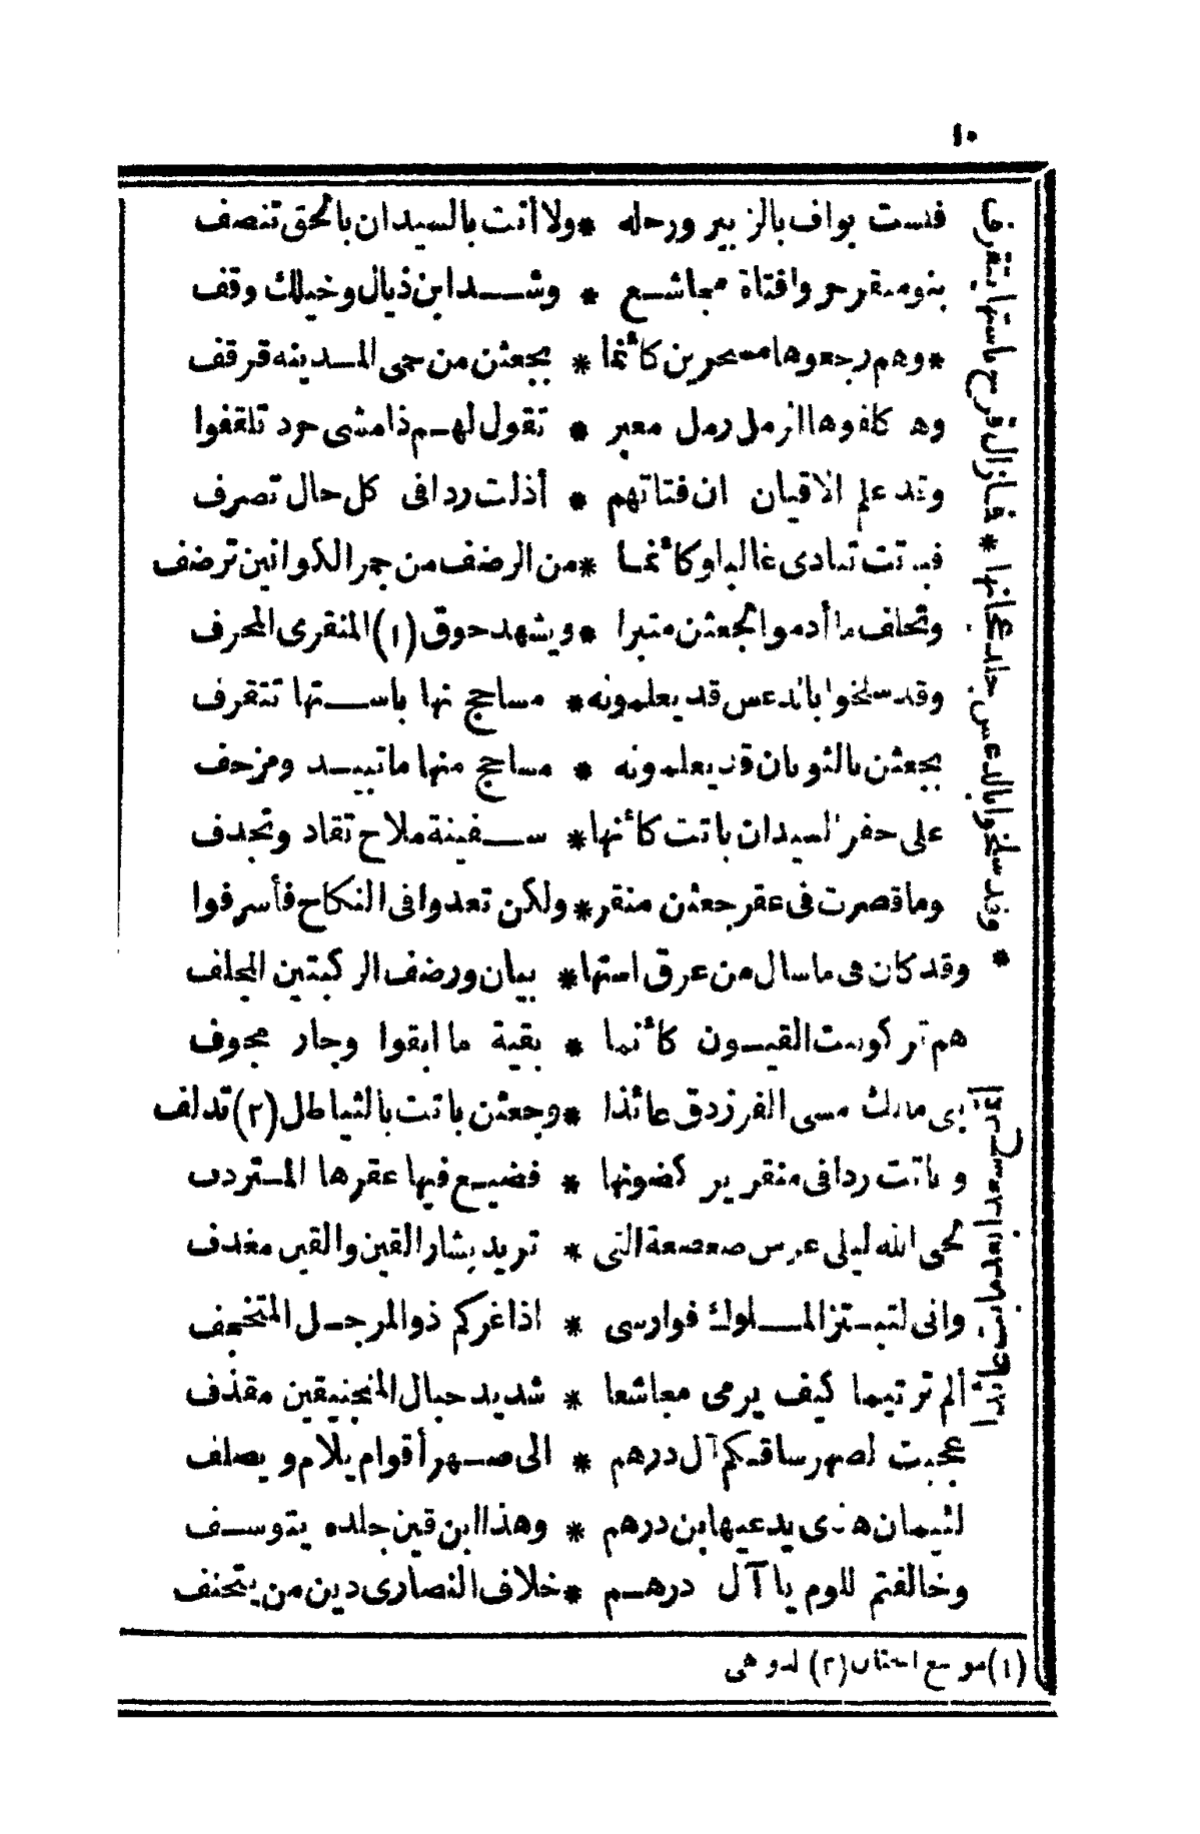 ١٠
فلست بواف بالزبير ورحله * ولا أنت بالسيدان بالحق تنصف
بنو منقر جروا فتاة مجاشع * وشد ابن ذيال وخيلك وقف
* وهم رجعوها مسحرين كأنما * بجعثن من حمى المدينه قرقف
وهم كلفوها الرمل رمل معبر * تقول لهم ذا مشى حرد تلقفوا
وقد علم الاقيان ان فتاتهم * أذلت ردافى كل حال تصرف
فباتت تنادى غالبا وكأنما * من الرضف من جمر الكوانين ترضف
وتحلف ما أدموا لجعثن مثبرا * ويشهد حوق (١) المنقرى المحرف
وقد سلخوا بالدعس قد يعلمونه * مساحج نها باستها تتقرف
بجعثن بالثوبان قد يعلمونه * مساحج منها ما تبيد ومزحف
على حفر السيدان باتت كأنها * سفينة ملاح تقاد وتجدف
وما قصرت فى عقر جعثن منقر * ولكن تعدوا فى النكاح فأسرفوا
وقد كان فى ما سال من عرق استها * بيان ورضف الركبتين المجلف
هم تركوا بنت القيون كأنما * بقية ما ابقوا وجار مجوف
بنى مالك مسى الفرزدق عائذا * وجعثن باتت بالنياطل (٢) تدلف
وباتت ردافى منقر ير كضونها * فضيع فيها عقرها المتردف
لحى الله ليلى عرس صعصعة التى * تريد بشار القين والقين مغدف
وانى لتبتز الملوك فوارسى * اذا غركم ذو المرجل المتخجف
ألم تر تيما كيف يرمى مجاشعا * شديد حبال المنجنيقين مقذف
عجبت لصهر ساقكم آل درهم * الى صهر أقوام يلام ويصلف
لئيمان هذى يدعيها ابن درهم * وهذا ابن قين جلده يتوسف
وخالفتم للوم يا آل درهم * خلاف النصارى دين من يتحنف
* وقد سلخوا بالدعس جلد عجانها * فما زال قرح باستها يتقرف
(١) موضع الختان (٢) الدواهى